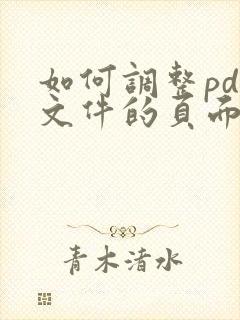 如何調整pd
文件的頁面
青木渚水